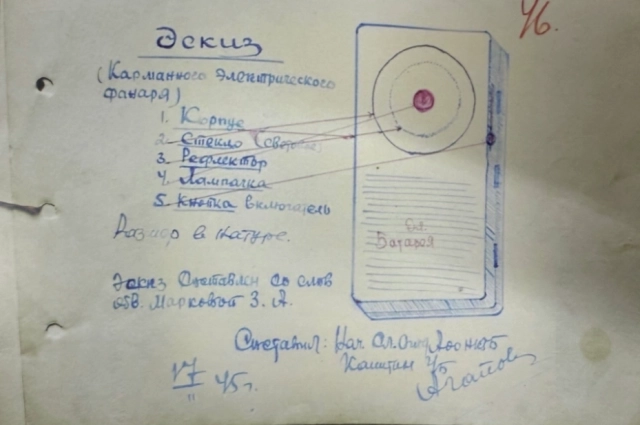 46.
Эскиз
(Карманного Электрического
фонаря)
1. Корпус
2. Стекло
3. Рефлектор
4. Лампачка
5. Кнопка включатель
Размер в натуре.
Батарея
Эскиз Составлен со слов
Марковой З. А.
Составил: Нач.
Капитан
45г.